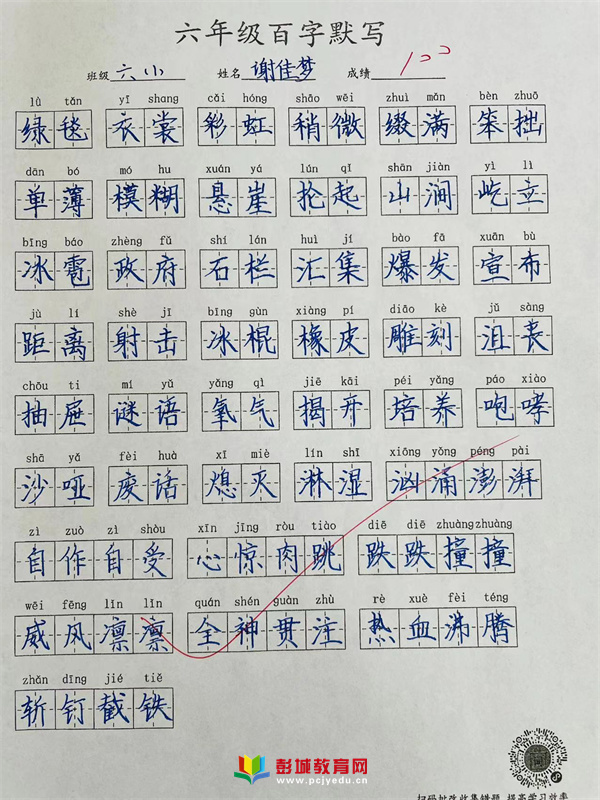 六年级百字默写
班级 六小 姓名 谢佳梦 成绩 100
lǜ tǎn yī shang cǎi hóng shāo wēi zhuì mǎn bèn zhuō
绿毯 衣裳 彩虹 稍微 缀满 笨拙
dān bó mó hu xuán yá lún qǐ shān jiàn yì lì
单薄 模糊 悬崖 抡起 山涧 屹立
bīng báo zhèng fǔ shí lán huì jí bào fā xuān bù
冰雹 政府 石栏 汇集 爆发 宣布
jù lí shè jī bīng gùn xiàng pí diāo kè jǔ sàng
距离 射击 冰棍 橡皮 雕刻 沮丧
chōu ti mí yǔ yǎng qì jiē kāi péi yǎng páo xiào
抽屉 谜语 氧气 揭开 培养 咆哮
shā yǎ fèi huà xī miè lín shī xiōng yǒng péng pài
沙哑 废话 熄灭 淋湿 汹涌澎湃
zì zuò zì shòu xīn jīng ròu tiào diē diē zhuàng zhuàng
自作自受 心惊肉跳 跌跌撞撞
wēi fēng lǐn lǐn quán shén guàn zhù rè xuè fèi téng
威风凛凛 全神贯注 热血沸腾
zhǎn dīng jié tiě
斩钉截铁
彭城教育网
www.pcjyedu.com
扫码批改收集错题 提高学习效率